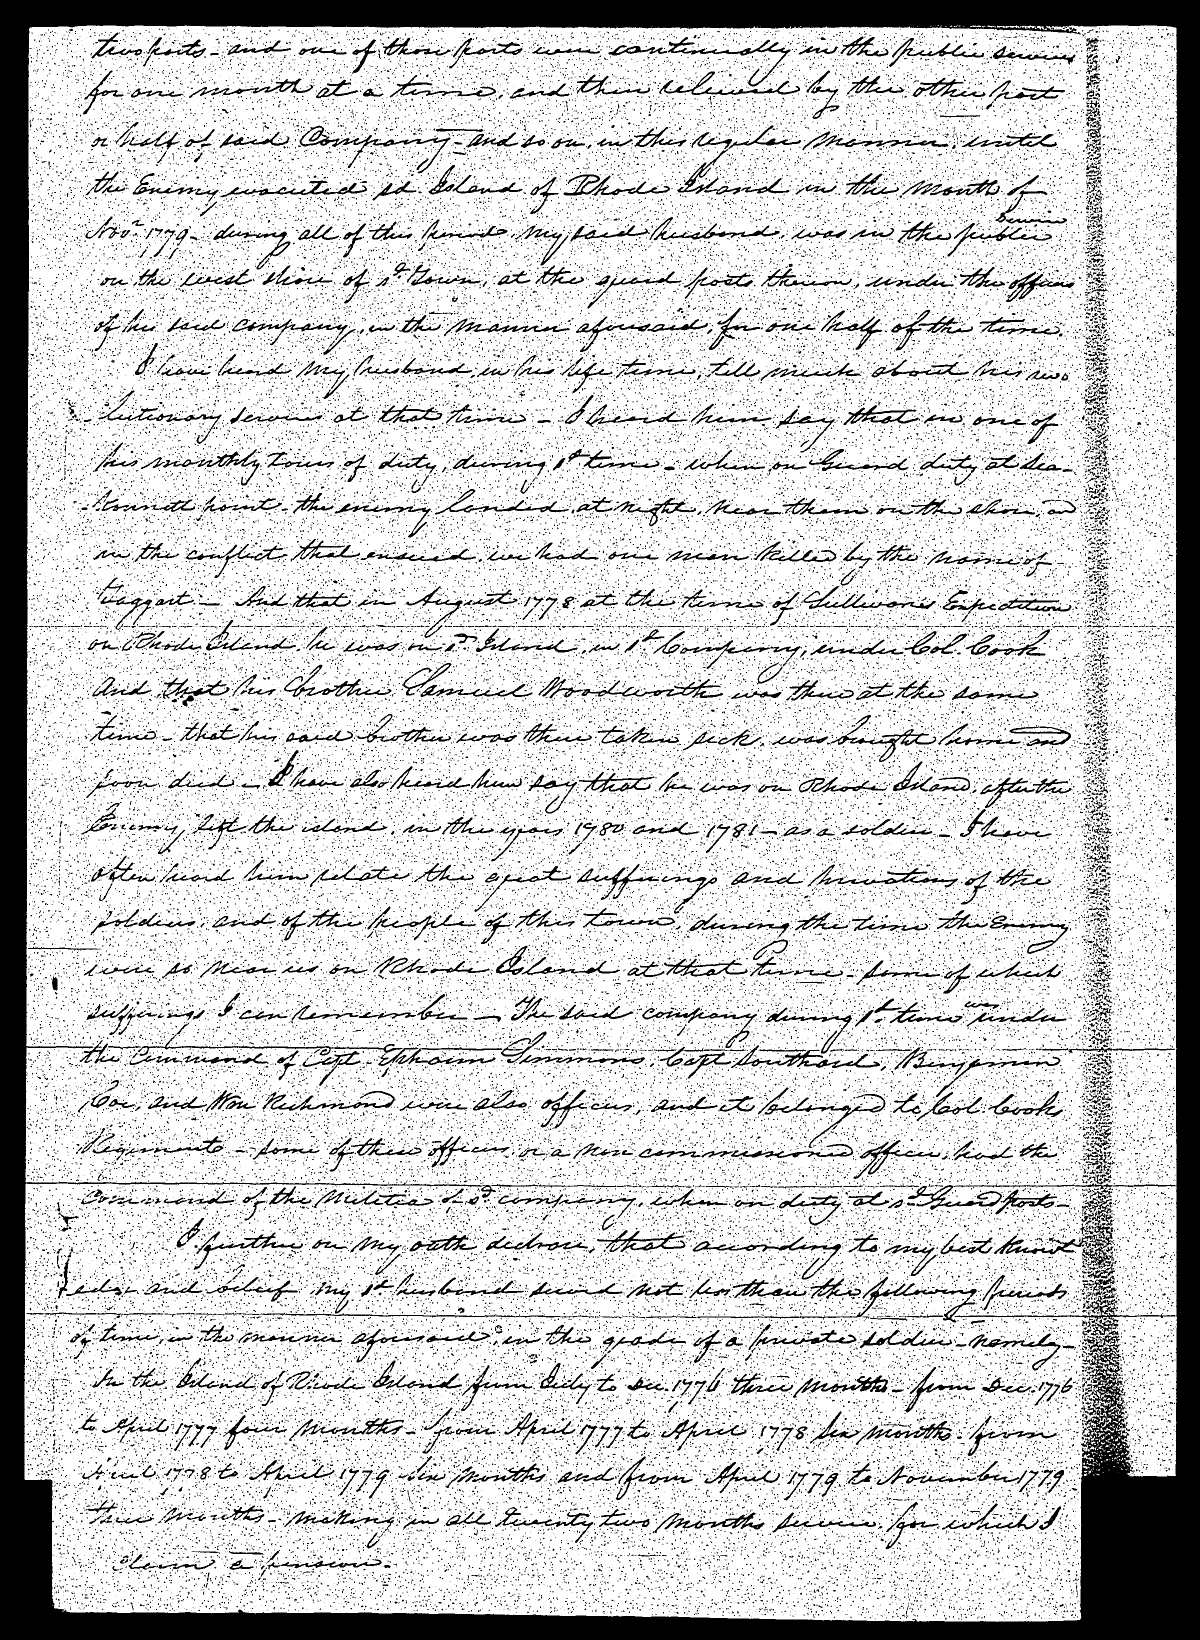 two parts - and one of those parts were continually in the public service
for one month at a time, and then relieved by the other part
or half of said Company - and so on, in this regular manner, until
the Enemy evacuted sd Island of Rhode Island in the month of
Novr. 1779 - during all of this period, my said husband, was in the public service
on the west shore of sd Town, at the guard posts thereon, under the officers
of his said company, in the manner aforesaid, for one half of the time.
I have heard my husband, in his life time, tell much about his revo
-lutionary services at that time - I heard him say that in one of
his monthly tours of duty, during sd time - when on Guard duty at Sea-
-konnett point - the enemy landed at night, near them on the shore, and
in the conflict that ensued, we had one man killed by the name of
Taggart - And that in August 1778 at the time of Sullivans Expedition
on Rhode Island he was on sd Island, in sd Company, under Col. Cook
And that his brother Samuel Woodworth was there at the same
time - that his said brother was then taken sick, was brought home and
soon died - I have also heard him say that he was on Rhode Island, after the
Enemy left the island, in the years 1780 and 1781 - as a soldier - I have
often heard him relate the great sufferings and privations of the
soldiers, and of the people of this town, during the time the Enemy
were so near us on Rhode Island at that time - some of which
sufferings I can remember - The said company during sd time was under
the command of Capt Ephraim Simmons, Capt Southard, Benjamin
Coe, and Wm Richmond were also officers, and it belonged to Col Cooks
Regiment - some of these officers or a non commissioned officer, had the
command of the Militia of sd company, when on duty at sd Guard posts -
I further on my oath declare, that according to my best knowl
edge and belief my sd husband served not less than the following periods
of time, in the manner aforesaid, in the grade of a private soldier - namely -
In the Island of Rhode Island from July to Dec. 1776 three months - from Dec. 1776
to April 1777 four months - from April 1777 to April 1778 Six months - from
April 1778 to April 1779 Six months and from April 1779 to November 1779
three months - making in all twenty two months service, for which I
claim a pension.